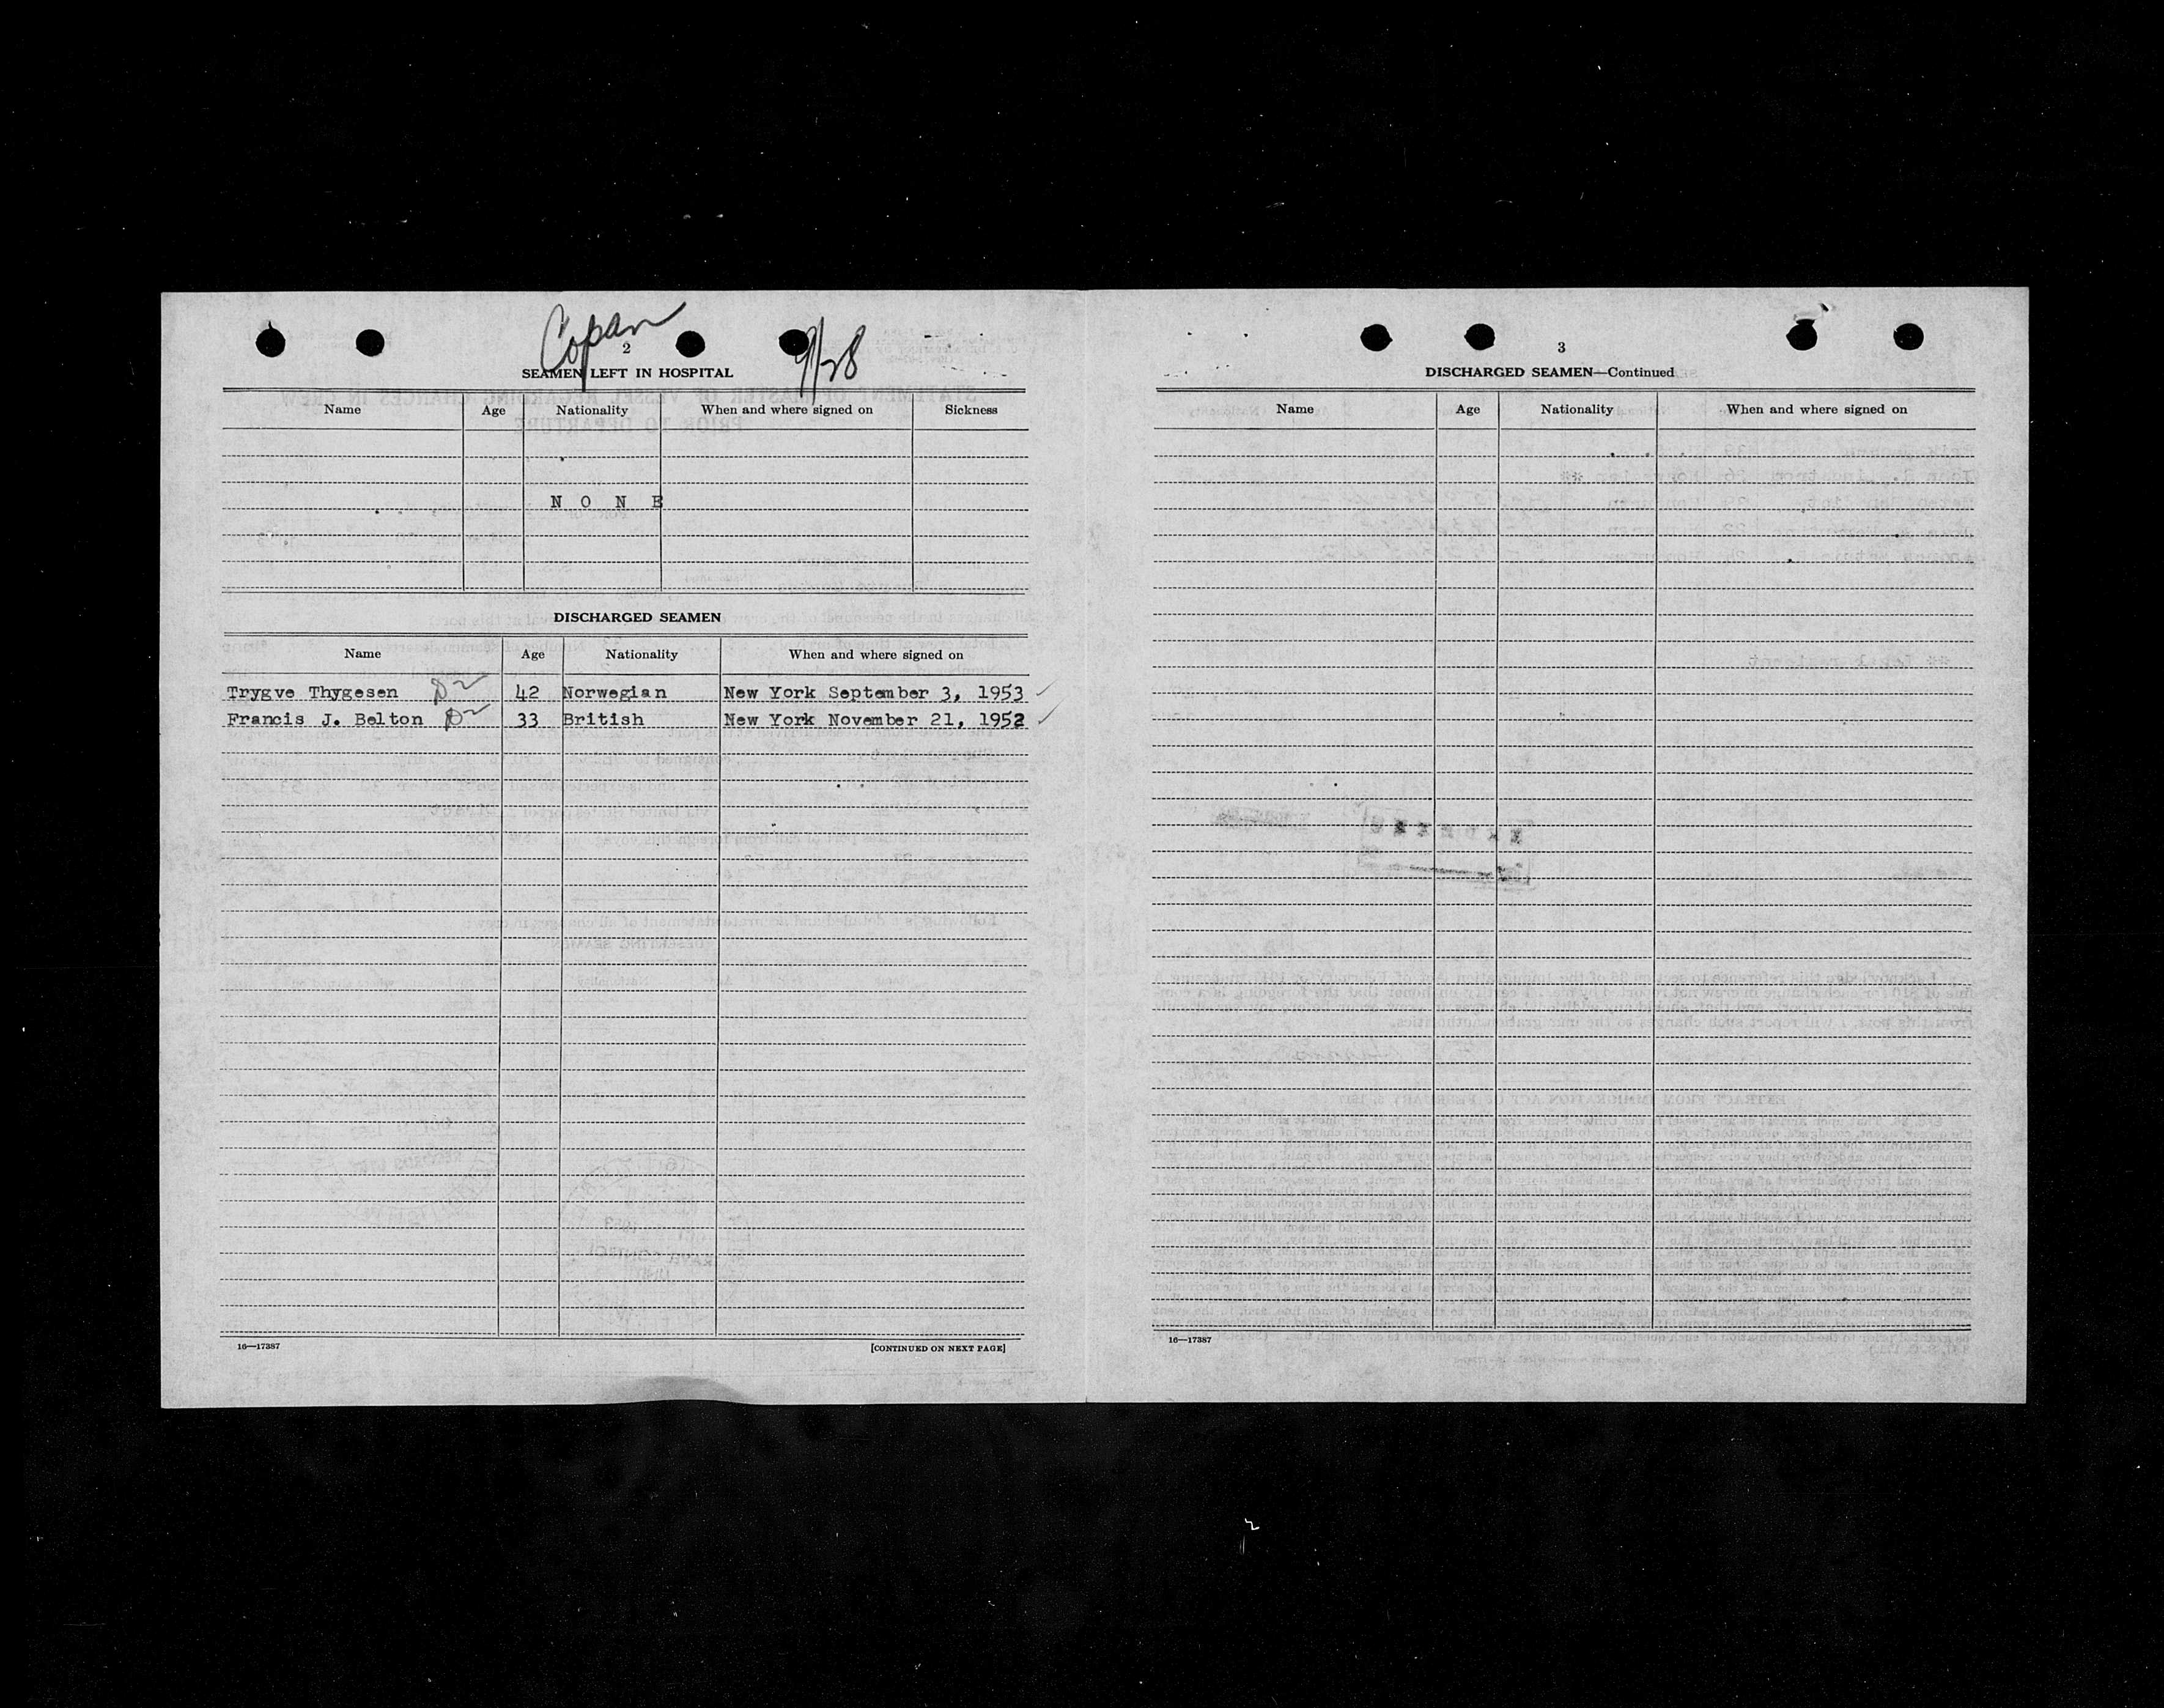 Copan 9/28
2
SEAMEN LEFT IN HOSPITAL
Name Age Nationality When and where signed on Sickness
N O N E
DISCHARGED SEAMEN
Name Age Nationality When and where signed on
Trygve Thygesen 42 Norwegian New York September 3, 1953
Francis J. Belton 33 British New York November 21, 1952
16—17387 [CONTINUED ON NEXT PAGE]
3
DISCHARGED SEAMEN—Continued
Name Age Nationality When and where signed on
16—17387